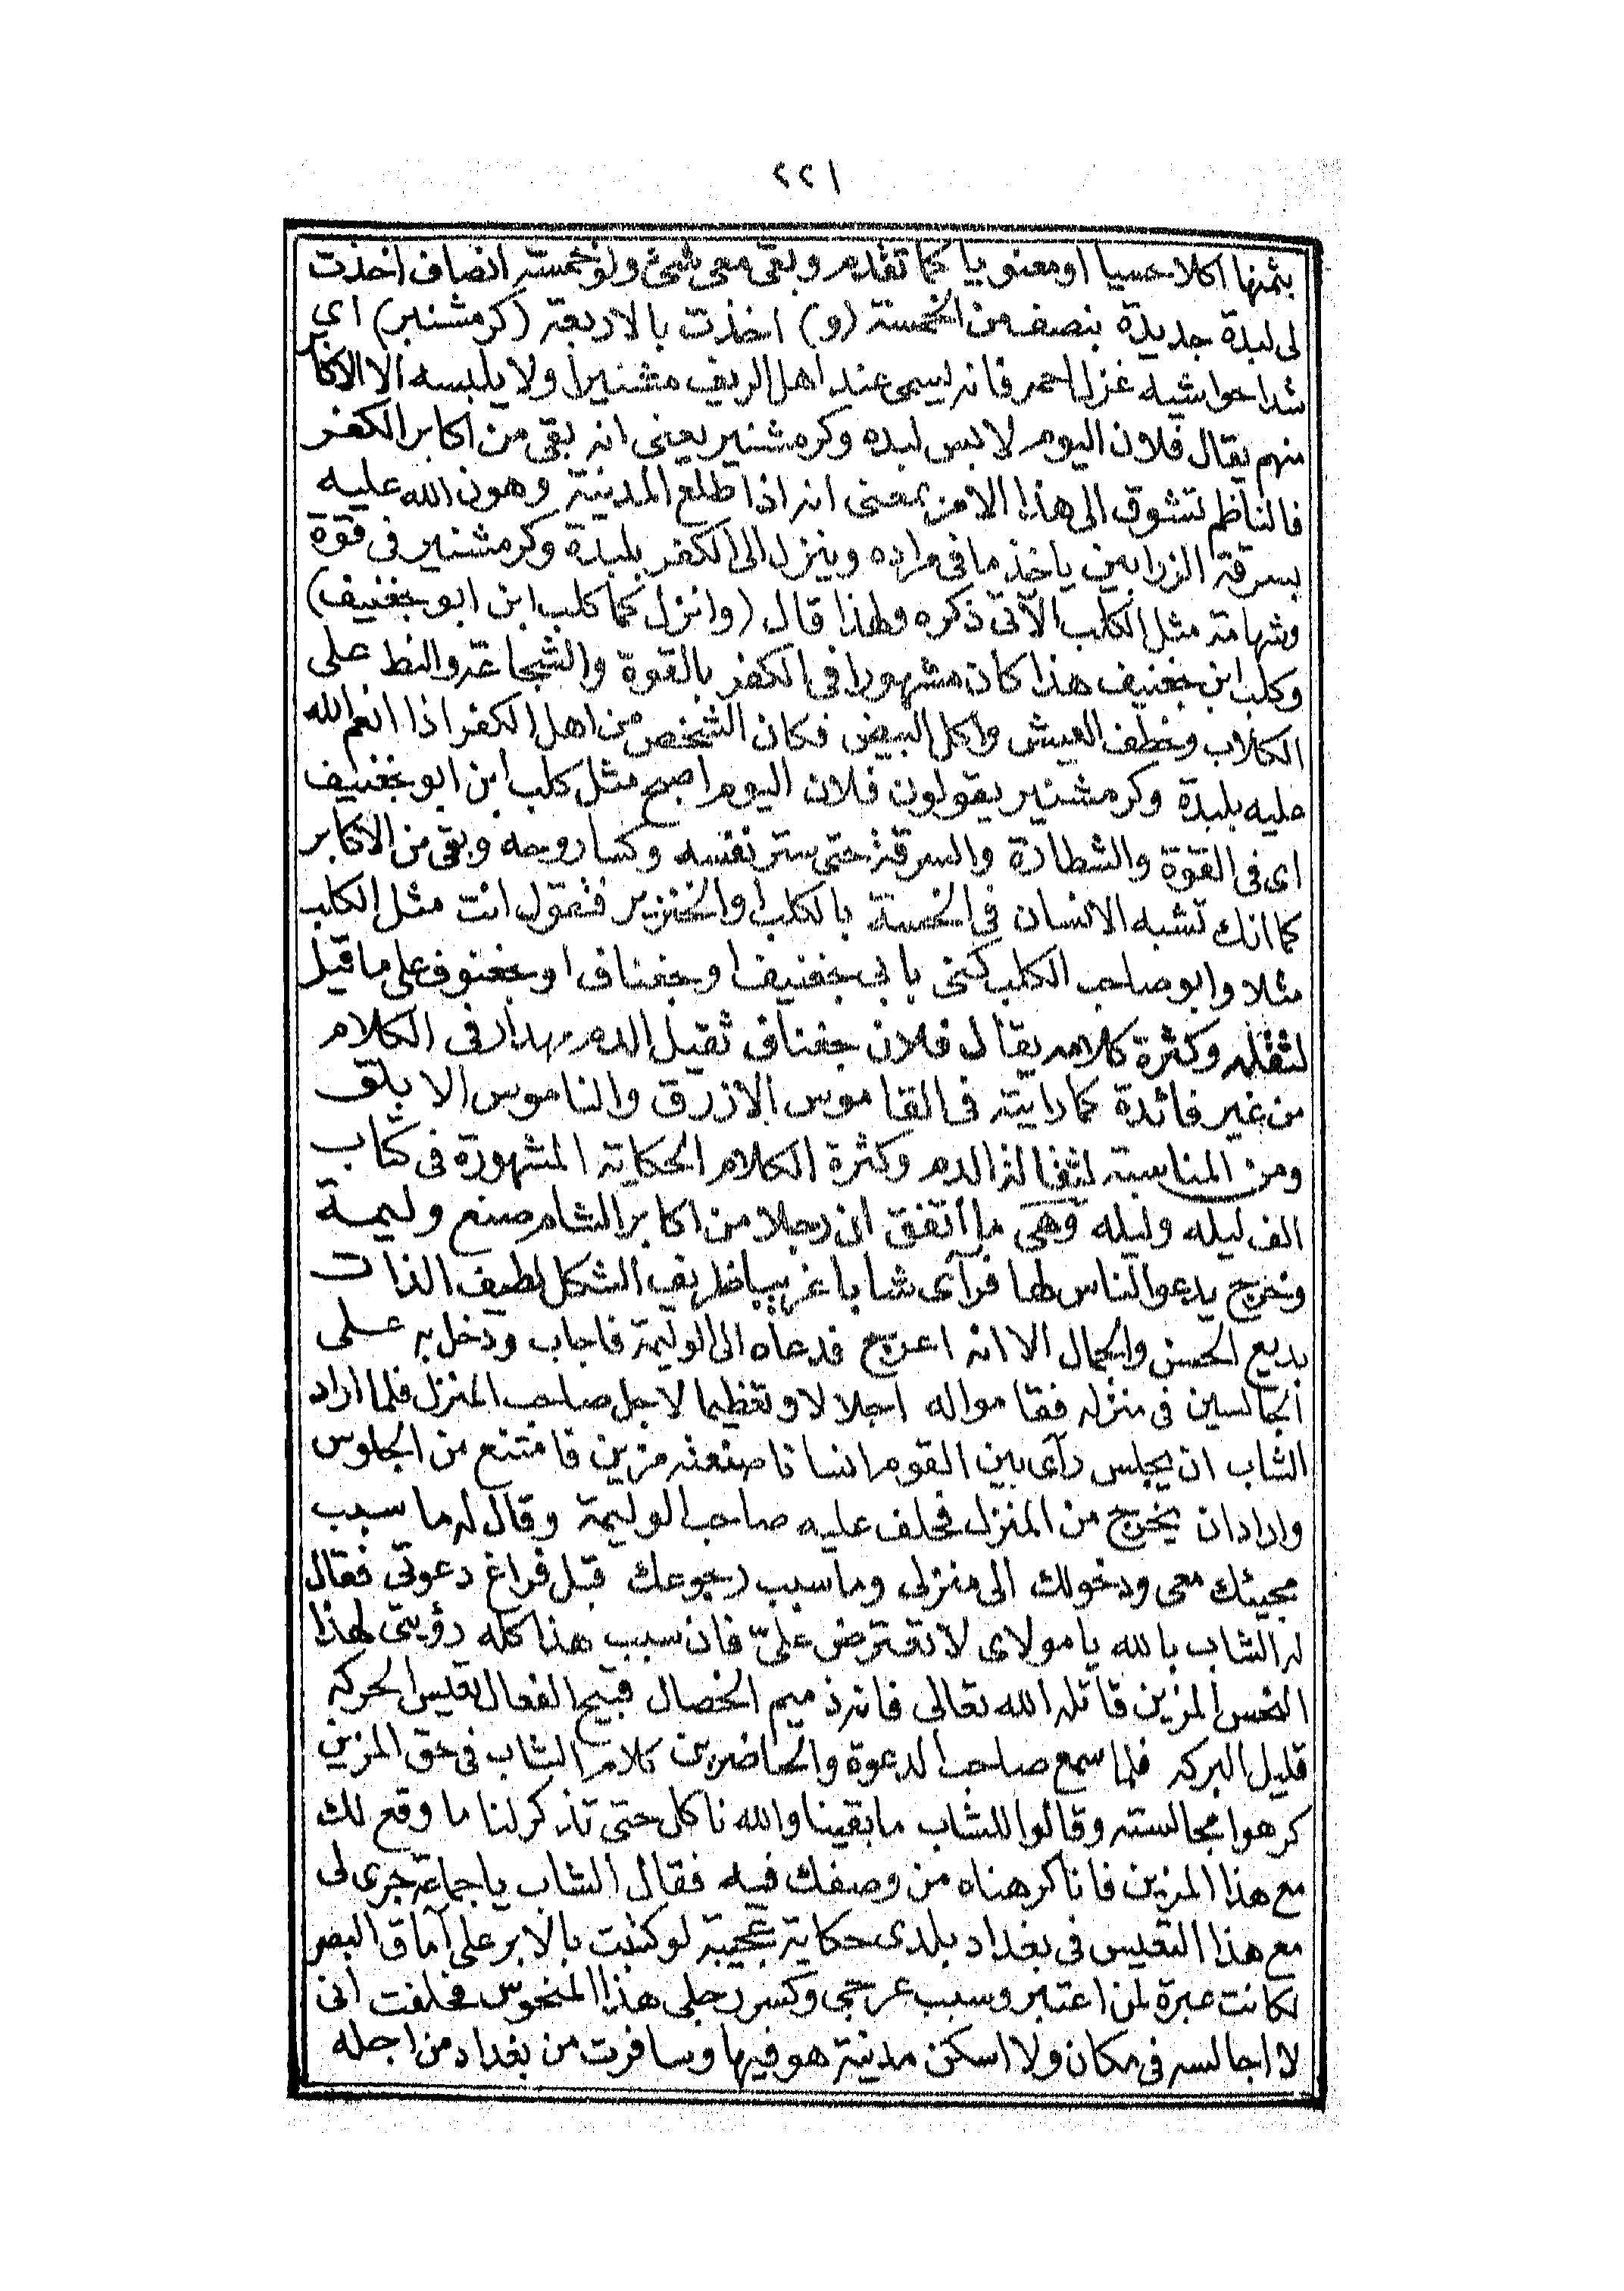 ٢٢١
بثمنها اكلا حسيا او معنويا كما تقدم وبقى معى شئ ولو خمسة انصاف اخذت
لى لبدة جديدة بنصف من الخمسة (و) اخذت بالاربعة (كر مشنير) اى
شدا حواشيه غزل احمر فانه يسمى عند اهل الريف مشنيرا ولا يلبسه الا الاكابر
منهم يقال فلان اليوم لابس لبده وكر مشنير يعنى انه بقى من اكابر الكفر
فالناظم تشوق الى هذا الامر بمعنى انه اذا طلع المدينة وهون الله عليه
بسرقة الزرابين ياخذ ما فى مراده وينزل الى الكفر بلبدة وكر مشنير فى قوة
وشهامة مثل الكلب الآتى ذكره ولهذا قال (وانزل كما كلب ابن ابو جغنيف)
وكلب ابن جغنيف هذا كان مشهورا فى الكفر بالقوة والشجاعة والنط على
الكلاب وخطف العيش واكل البيض فكان الشخص من اهل الكفر اذا انعم الله
عليه بلبدة وكر مشنير يقولون فلان اليوم اصبح مثل كلب ابن ابو جغنيف
اى فى القوة والشطارة والسرقة حتى ستر نفسه وكسا روحه وبقى من الاكابر
كما انك تشبه الانسان فى الخسة بالكلب او الخنزير فتقول انت مثل الكلب
مثلا وابو صاحب الكلب كنى بابى جغنيف او جغناف او جغنوف على ما قيل
لثقله وكثرة كلامه يقال فلان جغناف ثقيل الدم يهدار فى الكلام
من غير فائدة كما رايته فى القاموس الازرق والناموس الابلق
ومن المناسبة لثقالة الدم وكثرة الكلام الحكاية المشهورة فى كتاب
الف ليله وليله وهى ما أتفق ان رجلا من اكابر الشام صنع وليمة
وخرج يدعو الناس لها فرآى شابا غريبا ظريف الشكل لطيف الذات
بديع الحسن والجمال الا انه اعرج فدعاه الى الوليمة فاجاب ودخل به على
الجالسين فى منزله فقاموا له اجلالا وتعظيما لاجل صاحب المنزل فلما اراد
الشاب ان يجلس رآى بين القوم انسانا صنعته مزين فامتنع من الجلوس
واراد ان يخرج من المنزل فحلف عليه صاحب الوليمة وقال له ما سبب
مجيئك معى ودخولك الى منزلى وما سبب رجوعك قبل فراغ دعوتى فقال
له الشاب بالله يا مولاى لا تعترض علىّ فان سبب هذا كله رؤيتى لهذا
النحس المزين قاتله الله تعالى فانه ذميم الخصال قبيح الفعال تعيس الحركه
قليل البركه فلما سمع صاحب الدعوة والحاضرين كلام الشاب فى حق المزين
كرهوا مجالسته وقالوا للشاب ما بقينا والله ناكل حتى تذكر لنا ما وقع لك
مع هذا المزين فانا كرهناه من وصفك فيه فقال الشاب يا جماعة جرى لى
مع هذا التعيس فى بغداد بلدى حكاية عجيبة لو كتبت بالابر على آماق البصر
لكانت عبرة لمن اعتبر وسبب عرجى وكسر رجلى هذا المنحوس فحلفت انى
لا اجالسه فى مكان ولا اسكن مدينة هو فيها وسافرت من بغداد من اجله